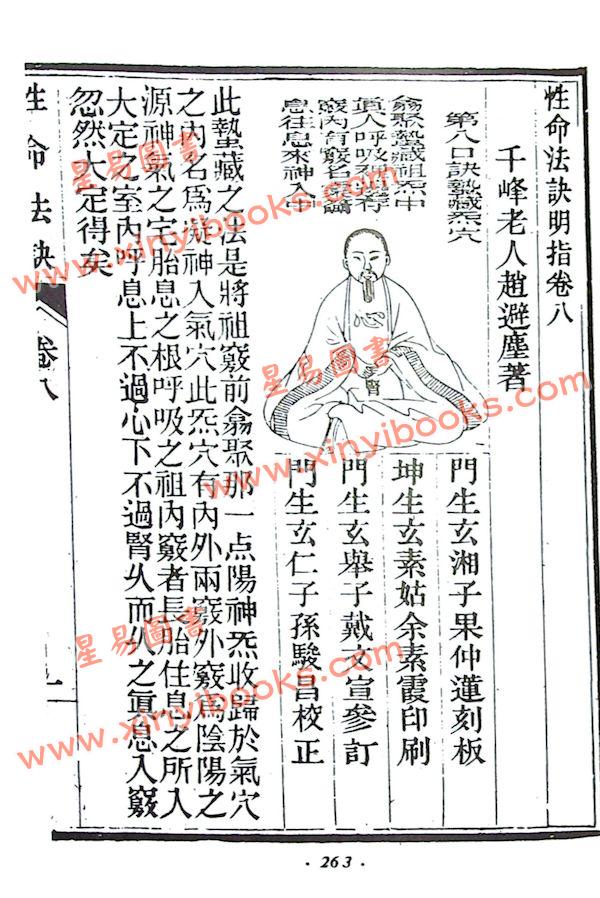 性命法訣明指卷八
千峰老人趙避塵著
第八口訣蟄藏炁穴
翕聚蟄藏祖炁中
真人呼吸
竅內有竅名
息往息來神入中
心
腎
門生玄湘子果仲蓮刻板
坤生玄素姑余素霞印刷
門生玄舉子戴文宣參訂
門生玄仁子孫駿昌校正
此蟄藏之法是將祖竅前翕聚那一点陽神炁收歸於氣穴
之內名爲凝神入氣穴此炁穴有內外兩竅外竅爲陰陽之
源神氣之宅胎息之根呼吸之祖內竅者長胎住息之所入
大定之室內呼息上不過心下不過腎久而久之眞息入竅
忽然大定得矣
性命法訣 卷八 一
星易圖書
www.xinyibooks.com
星易圖書
www.xinyibooks.com
星易圖書
www.xinyibooks.com
星易圖書
www.xinyibooks.com
· 263 ·